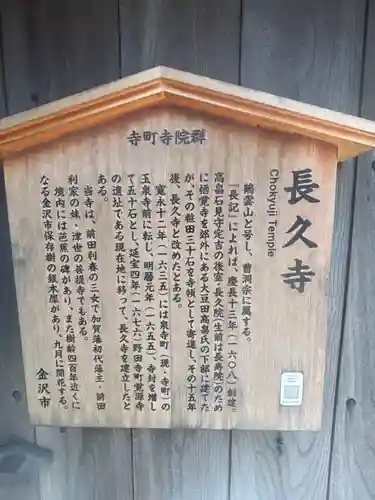 寺町寺院群
長久寺
Chokyuji Temple
鶴雲山と号し、曹洞宗に属する。
『長記』によれば、慶長十三年(一六〇八)創建。
高畠石見守定吉の後室・長久院(生前は長寿院)のため
に梧覚寺を郊外にある大豆田高畠氏の下邸に建てた
が、その粧田三十石を寺領として寄進し、その十五年
後、長久寺と改めたとある。
寛永十二年(一六三五)には泉寺町(現・寺町)の
玉泉寺前に転じ、明暦元年(一六五五)、寺封を増し
て五十石とし、延宝四年(一六七六)野田寺町覚源寺
の遺址である現在地に移って、長久寺を建立したと
ある。
当寺は、前田利春の三女で加賀藩初代藩主・前田
利家の妹・津世の菩提寺でもある。
境内には芭蕉の碑があり、また樹齢四百年近くに
なる金沢市保存樹の銀木犀があり、九月に開花する。
金沢市